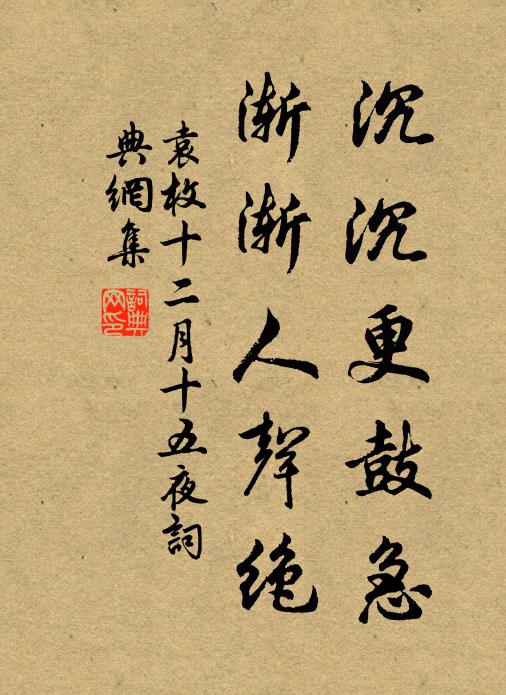 沉沉更鼓急
渐渐人聲絶
袁枚十二月十五夜詞
典網集
詞典网印